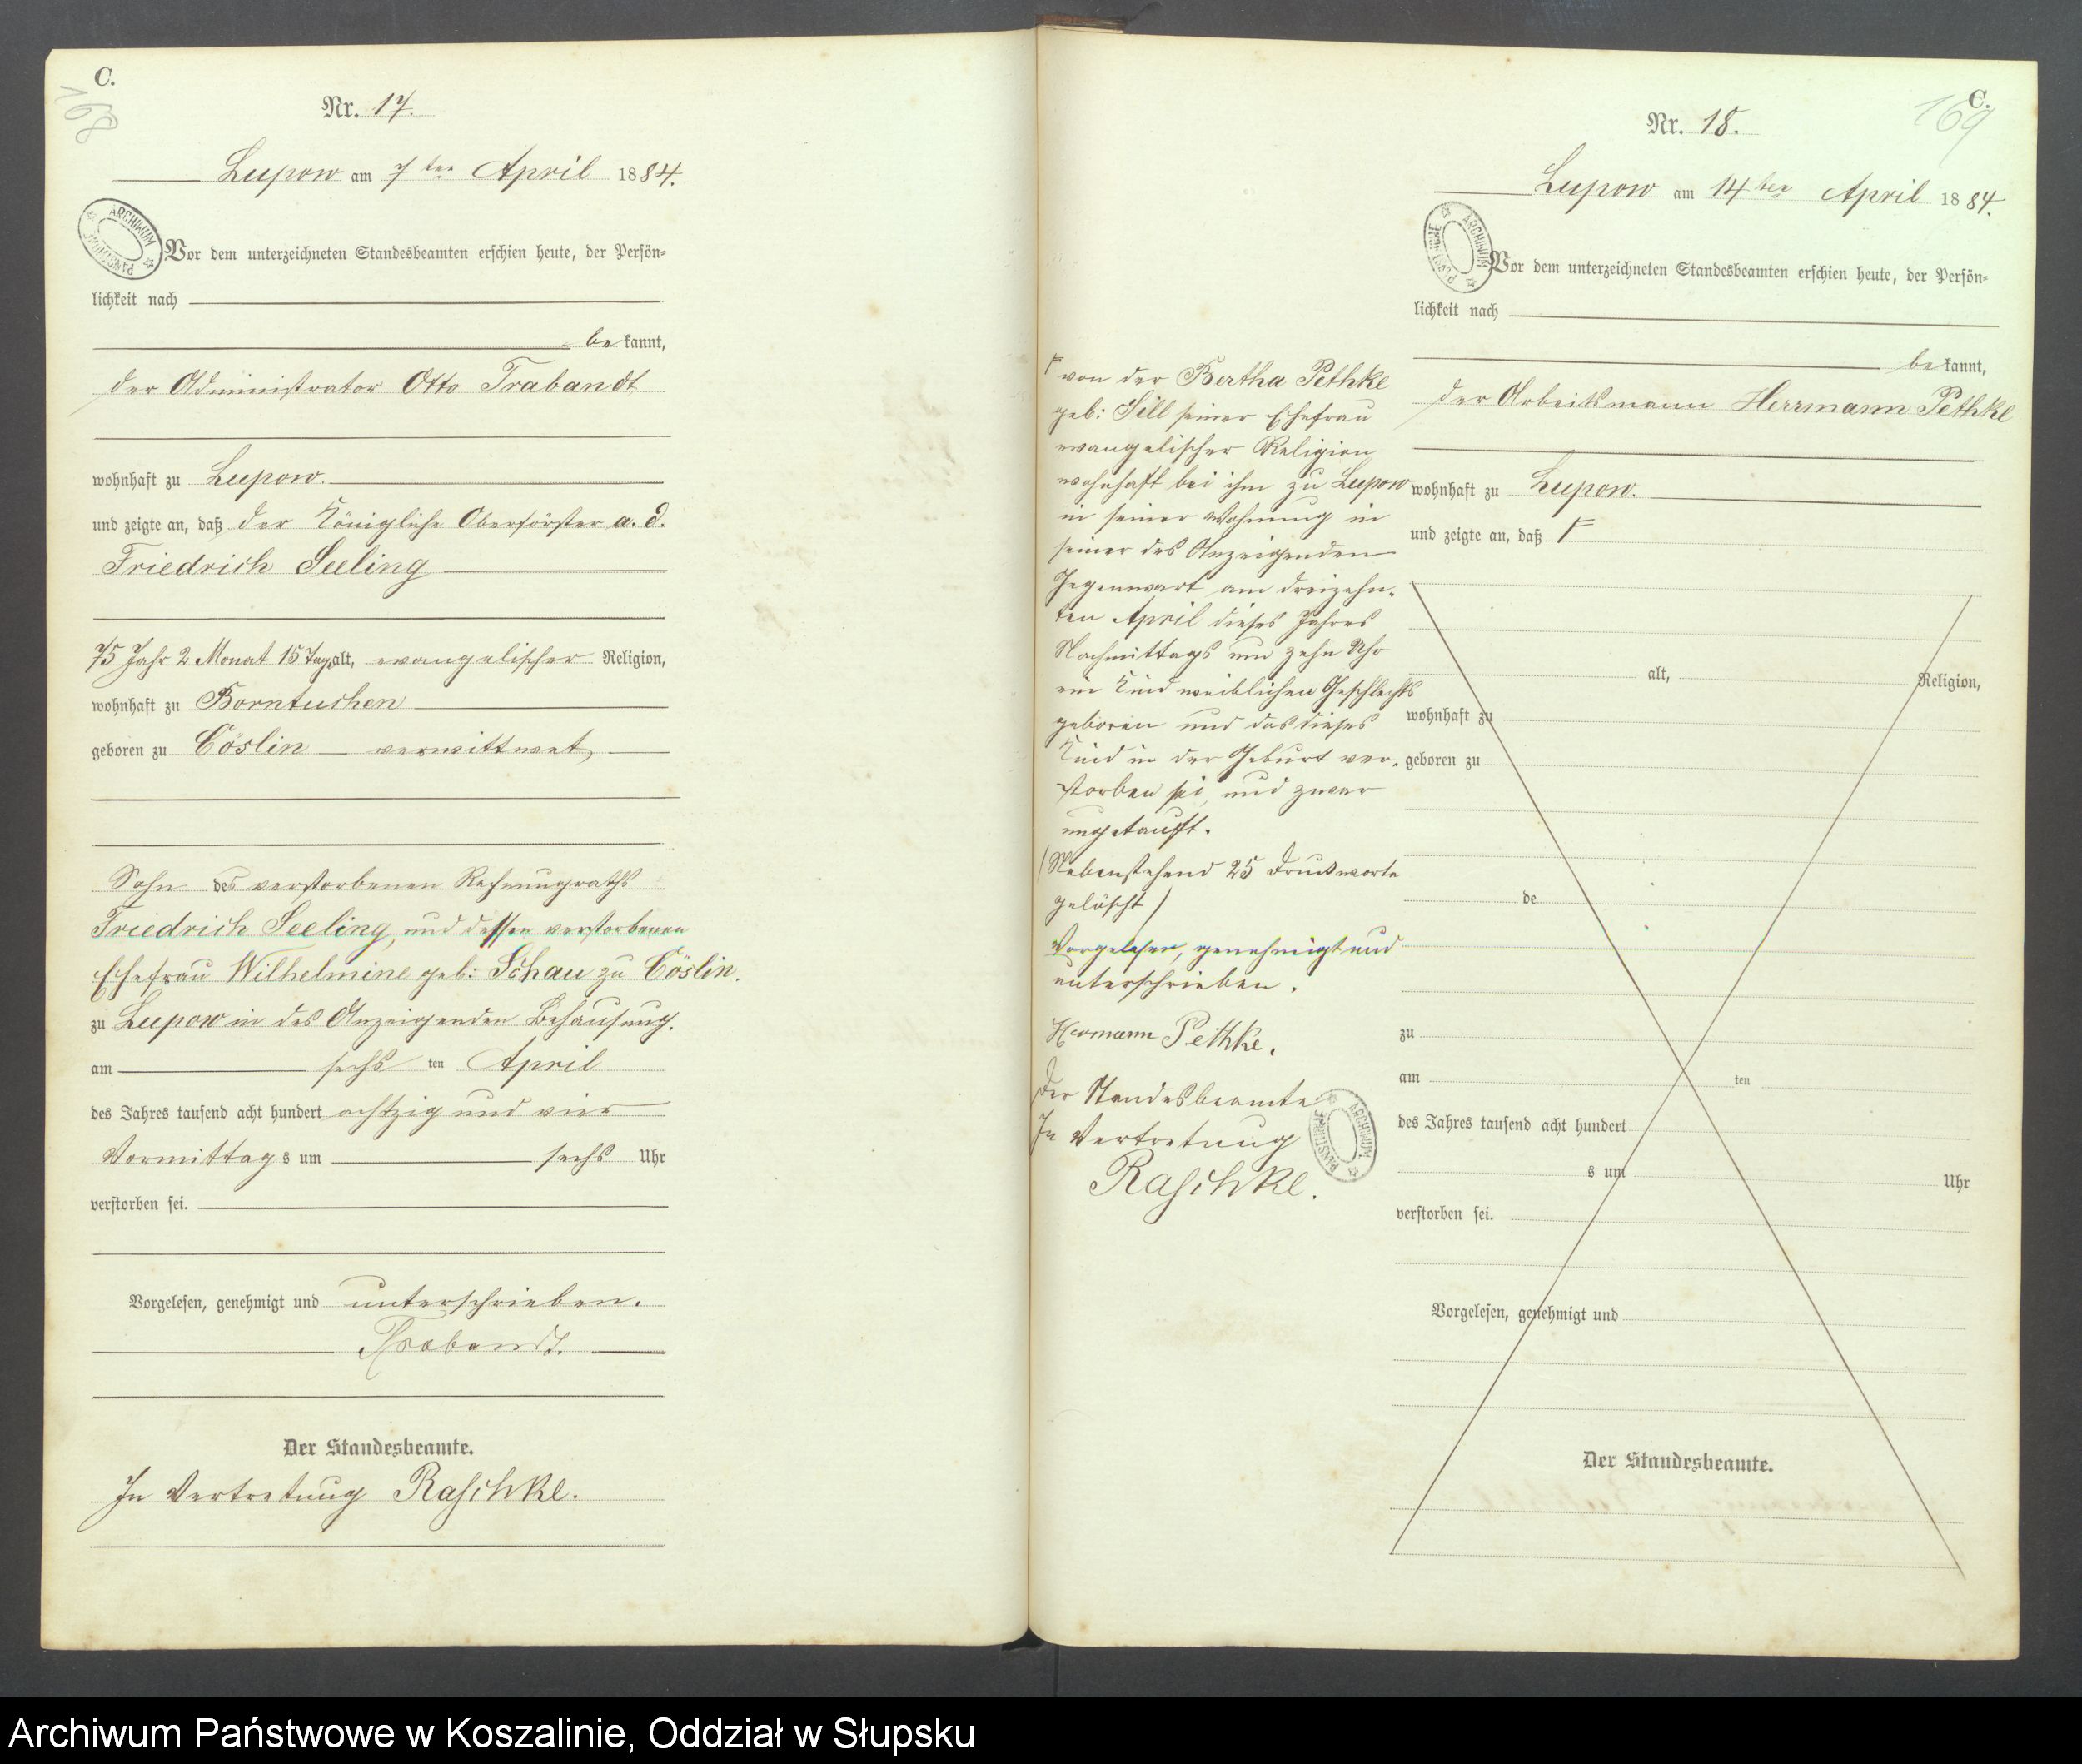 C.
168
Nr. 17.
Lupow am 7ten April 1884.
ARCHIWUM PAŃSTWOWE
Vor dem unterzeichneten Standesbeamten erschien heute, der Persön-
lichkeit nach
bekannt,
der Administrator Otto Trabandt
wohnhaft zu Lupow.
und zeigte an, daß der Königliche Oberförster a. d.
Friedrich Seeling
75 Jahr 2 Monat 15 Tage alt, evangelischer Religion,
wohnhaft zu Borntuchen
geboren zu Cöslin verwittwet
Sohn des verstorbenen Rechnungraths
Friedrich Seeling, und dessen verstorbenen
Ehefrau Wilhelmine geb: Schau zu Cöslin.
zu Lupow in des Anzeigenden Behausung.
am sechsten April
des Jahres tausend acht hundert achtzig und vier
Vormittags um sechs Uhr
verstorben sei.
Vorgelesen, genehmigt und unterschrieben.
Trabandt.
Der Standesbeamte.
In Vertretung Raschke.
C.
169
Nr. 18.
Lupow am 14ten April 1884.
ARCHIWUM PAŃSTWOWE
Vor dem unterzeichneten Standesbeamten erschien heute, der Persön-
lichkeit nach
bekannt,
der Arbeitsmann Herrmann Pethke
wohnhaft zu Lupow.
und zeigte an, daß
von der Bertha Pethke
geb: Sill seiner Ehefrau
evangelischer Religion
wohnhaft bei ihm zu Lupow
in seiner Wohnung in
seiner des Anzeigenden
Gegenwart am dreizehn-
ten April dieses Jahres
Nachmittags um zehn Uhr
ein Kind weiblichen Geschlechts
geboren und das dieses
Kind in der Geburt ver-
storben sei, und zwar
ungetauft.
(Nebenstehend 25 Druckworte
gelöscht)
Vorgelesen, genehmigt und
unterschrieben.
Hermann Pethke.
Der Standesbeamte
In Vertretung
Raschke.
ARCHIWUM PAŃSTWOWE
alt, Religion,
wohnhaft zu
geboren zu
de
zu
am ten
des Jahres tausend acht hundert
s um Uhr
verstorben sei.
Vorgelesen, genehmigt und
Der Standesbeamte.
Archiwum Państwowe w Koszalinie, Oddział w Słupsku